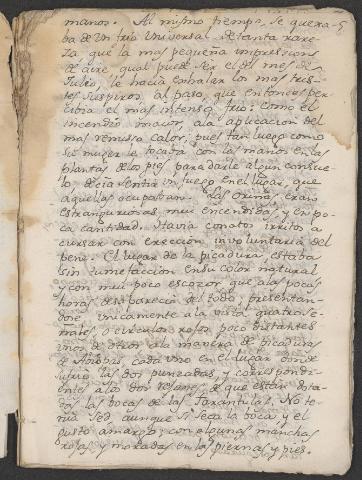 manos. Al mismo tiempo, se quexa-
ba de un frio Universal de tanta rare-
za que la mas pequeña impression
de aire qual puede ser el del mes de
Julio, le hacia exhalar los mas tris-
tes suspiros, al paso, que entonces per-
cibia el mas intenso frio: como el
incendio maior ala aplicacion del
mas remisso calor; pues tan luego como
su muger le tocaba con las manos en las
plantas delos pies para darle algun consue-
lo decia sentir un fuego en el lugar, que
aquellas ocupaban. Las orinas eran
estranguriosas mui encendidas y en po-
ca cantidad. Havia conatos irritos a
cursar con ereccion involuntaria del
pene. El lugar de la picadura estaba
sin tumefaccion en su color natural
y con mui poco escozor que alas pocas
horas desaparecia del todo, presentan-
dose unicamente ala vista quatro se-
ñales, o circulos rojos poco distantes
unos de otros ala manera de picaduras
de
cada uno en el lugar donde
sufrio las dos punzadas y correspondi-
ente alos dos
de que estan dota-
dos las bocas de las Tarantulas. No te-
nia sed, aunque si seca la boca, y el
gusto amargo: con algunas manchas
rojas y moradas en las piernas y pies.